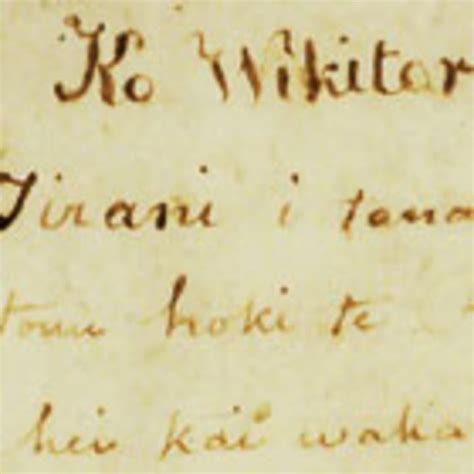 Ko Wikitor
Tirani i tona
tonu hoki te
hei kai waka